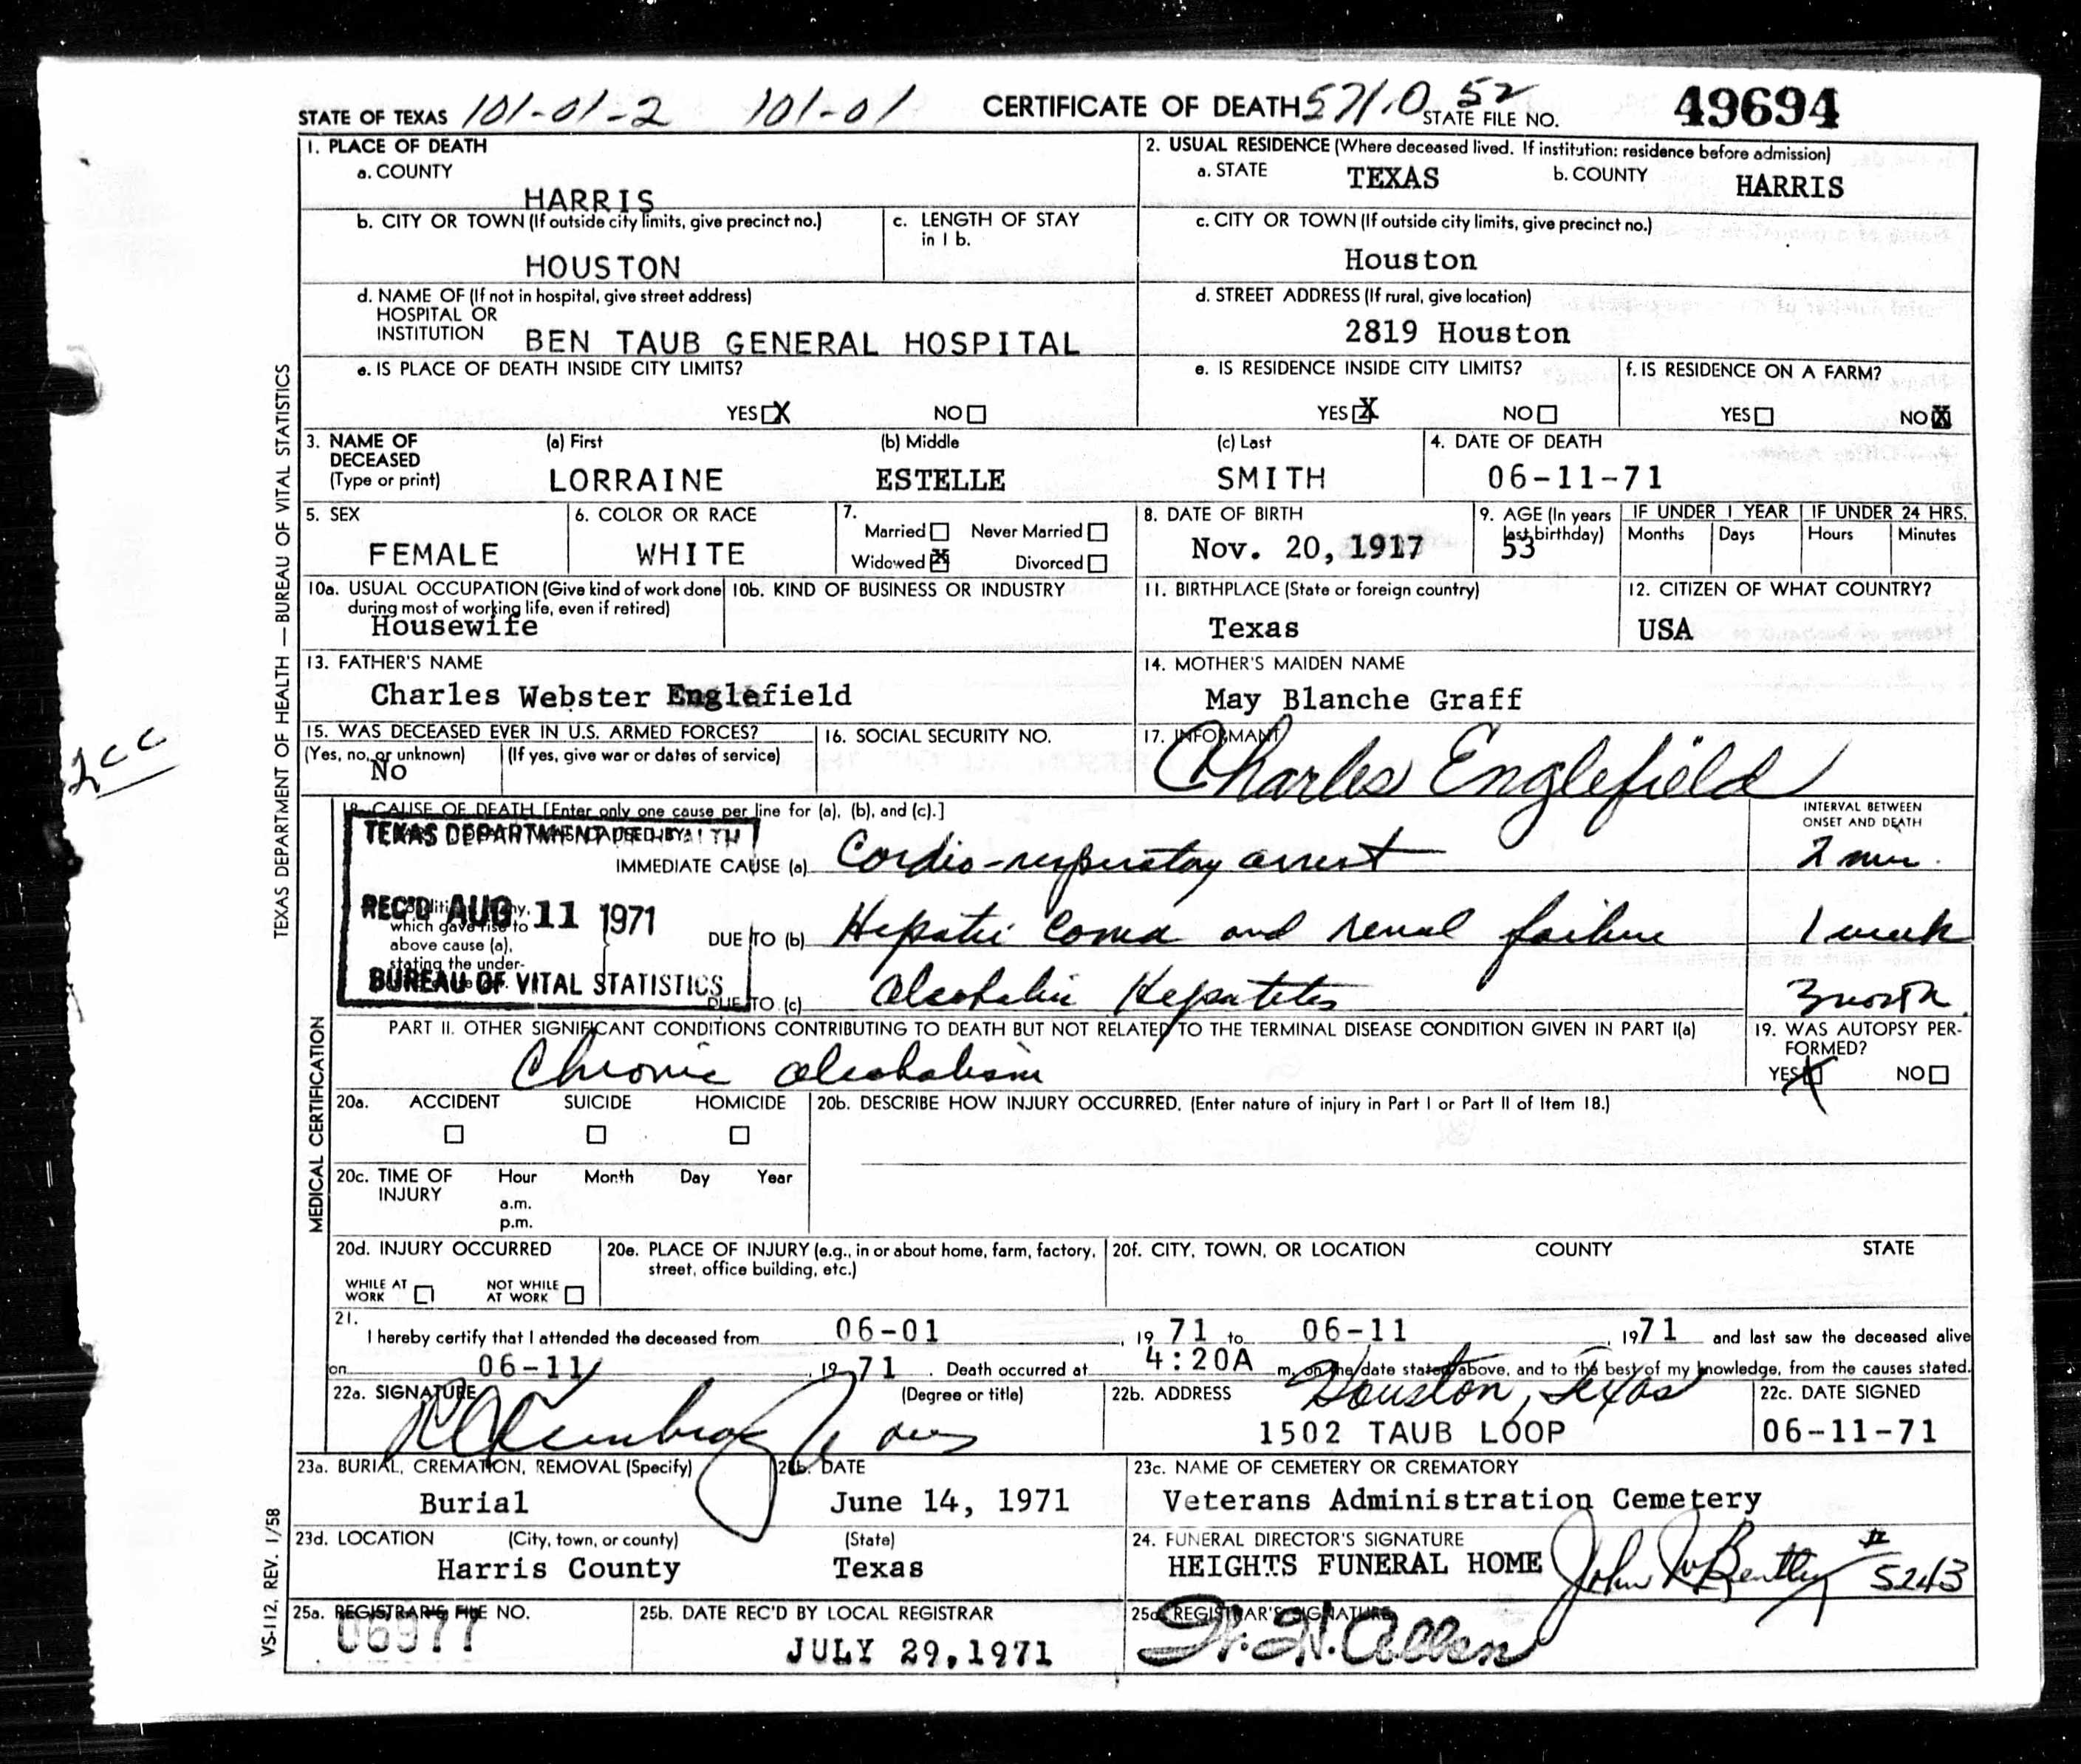 STATE OF TEXAS 101-01-2 101-01 CERTIFICATE OF DEATH 571.0 52 STATE FILE NO. 49694
1. PLACE OF DEATH
a. COUNTY
HARRIS
2. USUAL RESIDENCE (Where deceased lived. If institution: residence before admission)
a. STATE TEXAS b. COUNTY HARRIS
b. CITY OR TOWN (If outside city limits, give precinct no.)
HOUSTON
c. LENGTH OF STAY
in 1 b.
c. CITY OR TOWN (If outside city limits, give precinct no.)
Houston
d. NAME OF (If not in hospital, give street address)
HOSPITAL OR
INSTITUTION BEN TAUB GENERAL HOSPITAL
d. STREET ADDRESS (If rural, give location)
2819 Houston
e. IS PLACE OF DEATH INSIDE CITY LIMITS?
YES X NO
e. IS RESIDENCE INSIDE CITY LIMITS?
YES X NO
f. IS RESIDENCE ON A FARM?
YES NO X
3. NAME OF DECEASED (Type or print)
(a) First (b) Middle (c) Last
LORRAINE ESTELLE SMITH
4. DATE OF DEATH
06-11-71
5. SEX
FEMALE
6. COLOR OR RACE
WHITE
7.
Married Never Married
Widowed X Divorced
8. DATE OF BIRTH
Nov. 20, 1917
9. AGE (In years
last birthday)
53
IF UNDER 1 YEAR IF UNDER 24 HRS.
Months Days Hours Minutes
10a. USUAL OCCUPATION (Give kind of work done
during most of working life, even if retired)
Housewife
10b. KIND OF BUSINESS OR INDUSTRY
11. BIRTHPLACE (State or foreign country)
Texas
12. CITIZEN OF WHAT COUNTRY?
USA
13. FATHER'S NAME
Charles Webster Englefield
14. MOTHER'S MAIDEN NAME
May Blanche Graff
15. WAS DECEASED EVER IN U.S. ARMED FORCES?
(Yes, no, or unknown) (If yes, give war or dates of service)
No
16. SOCIAL SECURITY NO.
17. INFORMANT
Charles Englefield
18. CAUSE OF DEATH [Enter only one cause per line for (a), (b), and (c).]
INTERVAL BETWEEN
ONSET AND DEATH
TEXAS DEPARTMENT
REC'D AUG 11 1971
BUREAU OF VITAL STATISTICS
IMMEDIATE CAUSE (a) Cardio-respiratory arrest 2 min.
which gave rise to
above cause (a),
stating the under-
DUE TO (b) Hepatic Coma and renal failure 1 week
DUE TO (c) Alcoholic Hepatitis 3 month
PART II. OTHER SIGNIFICANT CONDITIONS CONTRIBUTING TO DEATH BUT NOT RELATED TO THE TERMINAL DISEASE CONDITION GIVEN IN PART I(a)
Chronic alcoholism
19. WAS AUTOPSY PER-
FORMED?
YES X NO
20a. ACCIDENT SUICIDE HOMICIDE
20b. DESCRIBE HOW INJURY OCCURRED. (Enter nature of injury in Part I or Part II of Item 18.)
20c. TIME OF INJURY Hour Month Day Year
a.m.
p.m.
20d. INJURY OCCURRED
WHILE AT WORK NOT WHILE AT WORK
20e. PLACE OF INJURY (e.g., in or about home, farm, factory,
street, office building, etc.)
20f. CITY, TOWN, OR LOCATION COUNTY STATE
21.
I hereby certify that I attended the deceased from 06-01, 19 71 to 06-11, 19 71 and last saw the deceased alive
on 06-11, 19 71. Death occurred at 4:20A m., on the date stated above, and to the best of my knowledge, from the causes stated.
22a. SIGNATURE (Degree or title)
22b. ADDRESS Houston, Texas
1502 TAUB LOOP
22c. DATE SIGNED
06-11-71
23a. BURIAL, CREMATION, REMOVAL (Specify)
Burial
23b. DATE
June 14, 1971
23c. NAME OF CEMETERY OR CREMATORY
Veterans Administration Cemetery
23d. LOCATION (City, town, or county) (State)
Harris County Texas
24. FUNERAL DIRECTOR'S SIGNATURE
HEIGHTS FUNERAL HOME John W Bentley # 5243
25a. REGISTRAR'S FILE NO.
06977
25b. DATE REC'D BY LOCAL REGISTRAR
JULY 29, 1971
25c. REGISTRAR'S SIGNATURE
W. H. Allen
TEXAS DEPARTMENT OF HEALTH — BUREAU OF VITAL STATISTICS
MEDICAL CERTIFICATION
VS-112, REV. 1/58
2cc